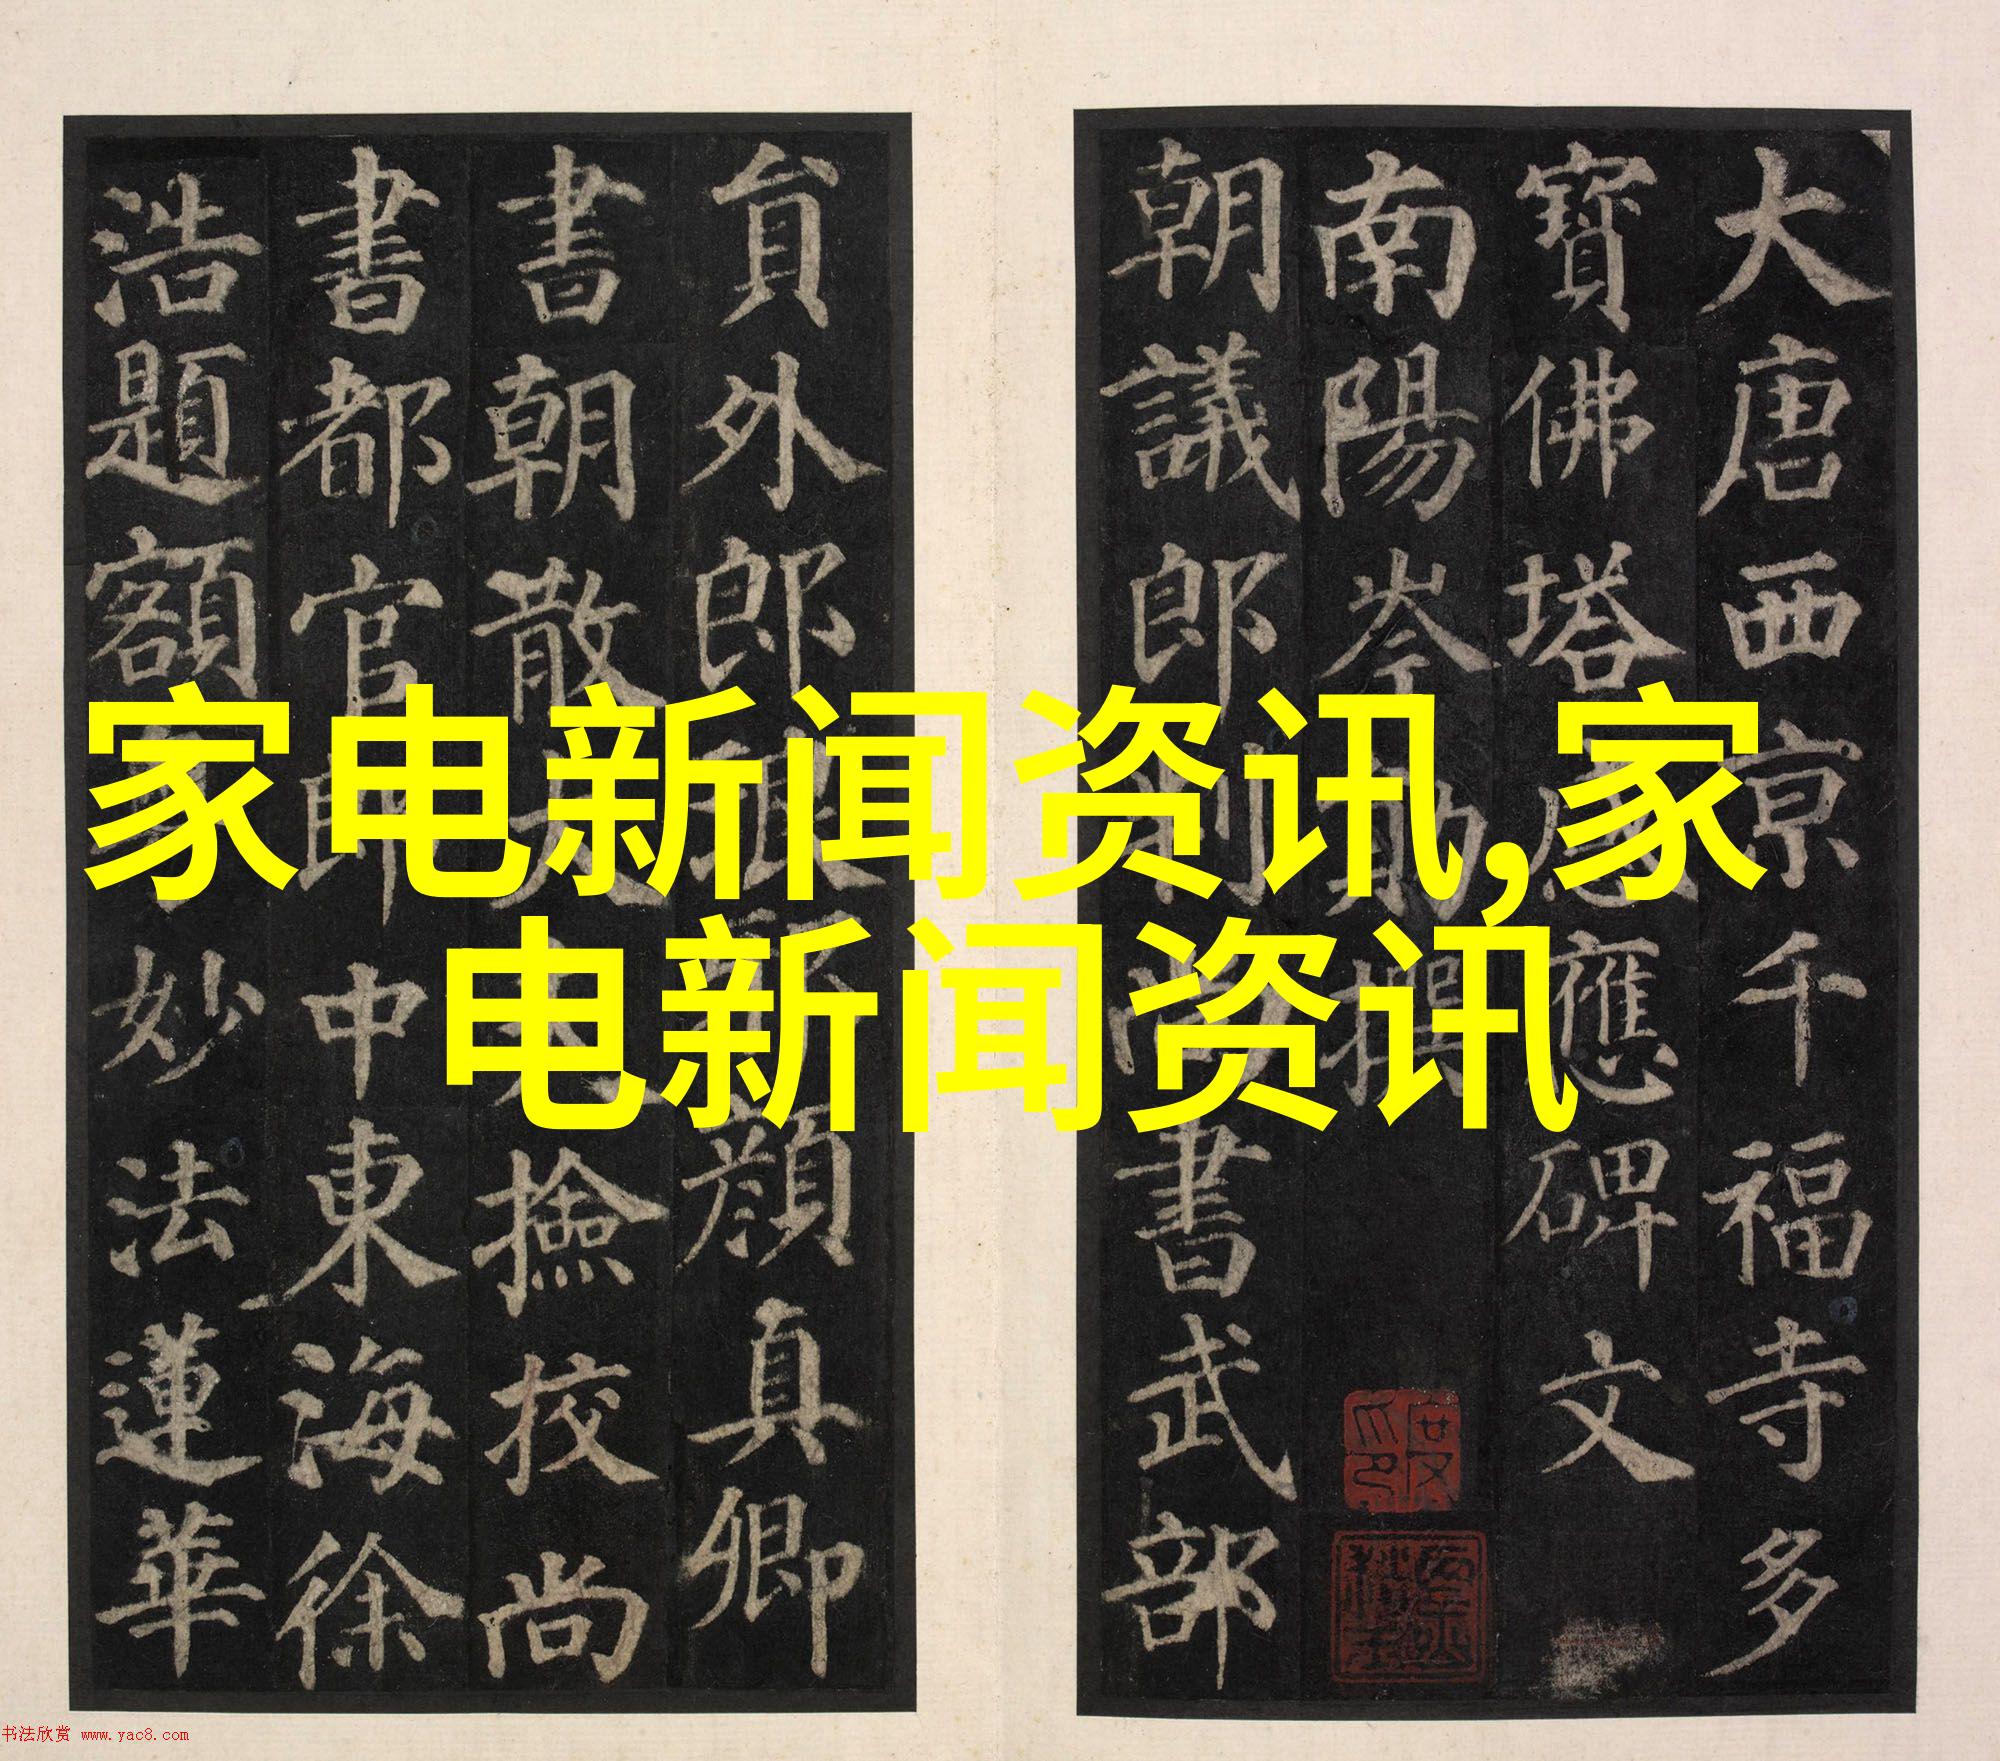 大唐西京千福寺多
寶佛塔感應碑文
南陽岑勛撰
朝議郎判尚書武部
貟外郎琅邪顏真卿
書朝散大夫撿校尚
書都官郎中東海徐
浩題額
妙法蓮華
家电新闻资讯,家
电新闻资讯
书法欣赏 www.yac8.com